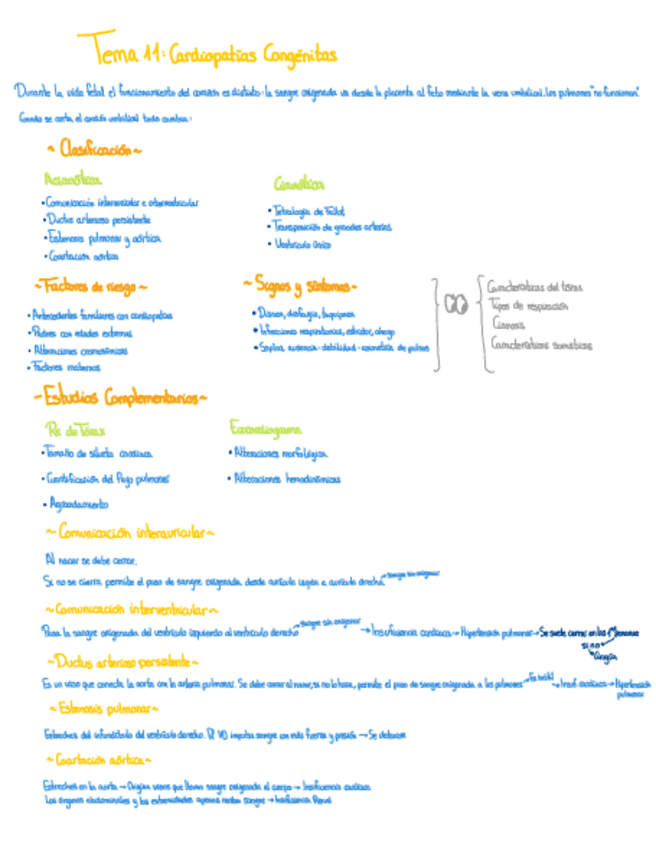 Tema 11: Cardiopatías Congénitas
Durante la vida fetal el funcionamiento del corazón es distinto: la sangre oxigenada va desde la placenta al feto mediante la vena umbilical. Los pulmones "no funcionan".
Cuando se corta el cordón umbilical todo cambia:
~ Clasificación ~
Acianótica
Cianótica
• Comunicación interauricular e interventricular
• Ductus arterioso persistente
• Estenosis pulmonar y aórtica
• Coartación aórtica
• Tetralogía de Fallot
• Transposición de grandes arterias
• Ventrículo único
~ Factores de riesgo ~
• Antecedentes familiares con cardiopatías
• Padres con edades extremas
• Alteraciones cromosómicas
• Factores maternos
~ Signos y síntomas ~
• Disnea, disfagia,
• Infecciones respiratorias, estridor, ahogo
• Soplos, ausencia - debilidad - asimetría de pulsos
Características del tórax
Tipos de respiración
Cianosis
Características somáticas
~ Estudios Complementarios ~
Rx de Tórax
• Tamaño de silueta cardíaca
• Cuantificación del flujo pulmonar
•
Ecocardiograma
• Alteraciones morfológica
• Alteraciones hemodinámicas
~ Comunicación interauricular ~
Al nacer se debe cerrar.
Si no se cierra, permite el paso de sangre oxigenada desde aurícula izquierda a aurícula derecha → sangre sin oxigenar
~ Comunicación interventricular ~
Pasa la sangre oxigenada del ventrículo izquierdo al ventrículo derecho → sangre sin oxigenar → Insuficiencia cardíaca → Hipertensión pulmonar → Se suele cerrar en las 1ª semanas
si no
Cirugía
~ Ductus arterioso persistente ~
Es un vaso que conecta la aorta con la arteria pulmonar. Se debe cerrar al nacer, si no lo hace, permite el paso de sangre oxigenada a los pulmones → Insuf. cardíaca → Hipertensión pulmonar
~ Estenosis pulmonar ~
Estrechez del infundíbulo del ventrículo derecho. El VD impulsa sangre con más fuerza y presión → Se deteriora
~ Coartación aórtica ~
Estrechez en la aorta → Origina vasos que llevan sangre oxigenada al cuerpo → Insuficiencia cardíaca
Los órganos abdominales y las extremidades apenas reciben sangre → Insuficiencia Renal